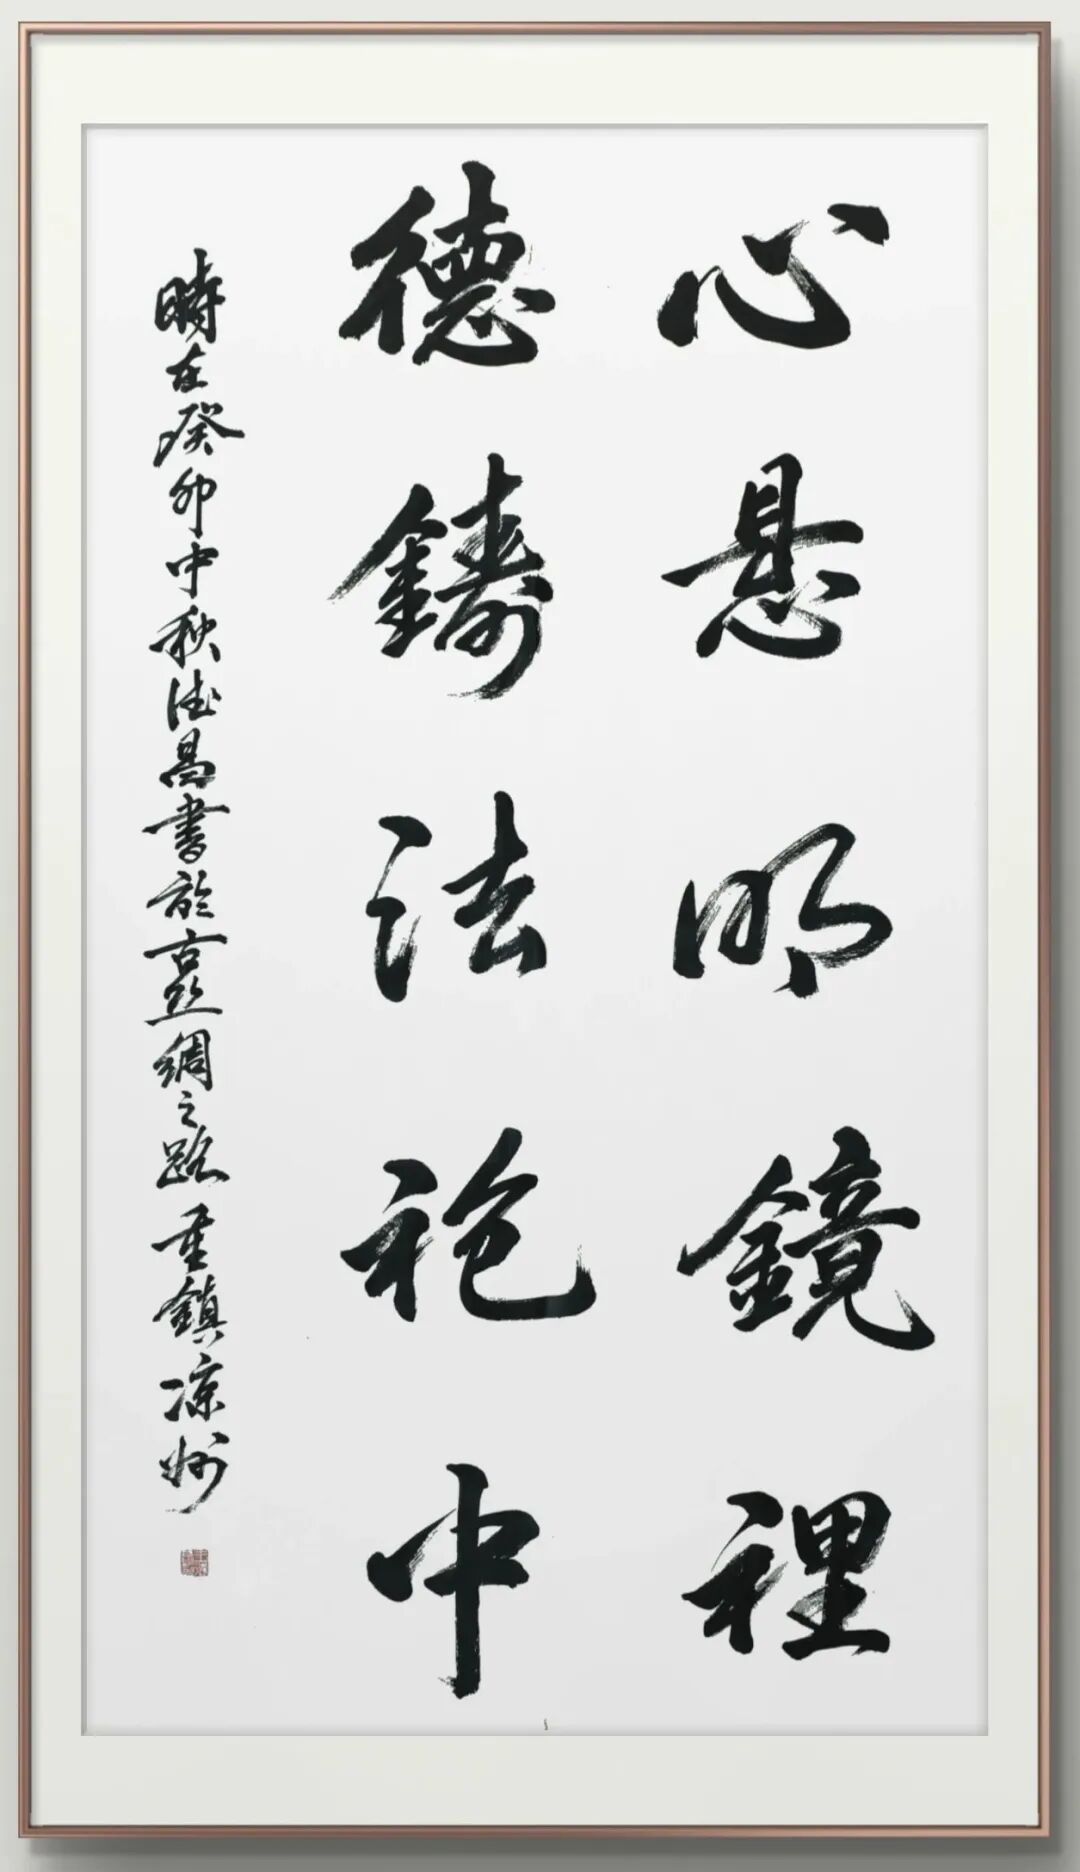 心悬明鏡裡
德鑄法袍中
時在癸卯中秋德昌書於古丝绸之路重鎮凉州